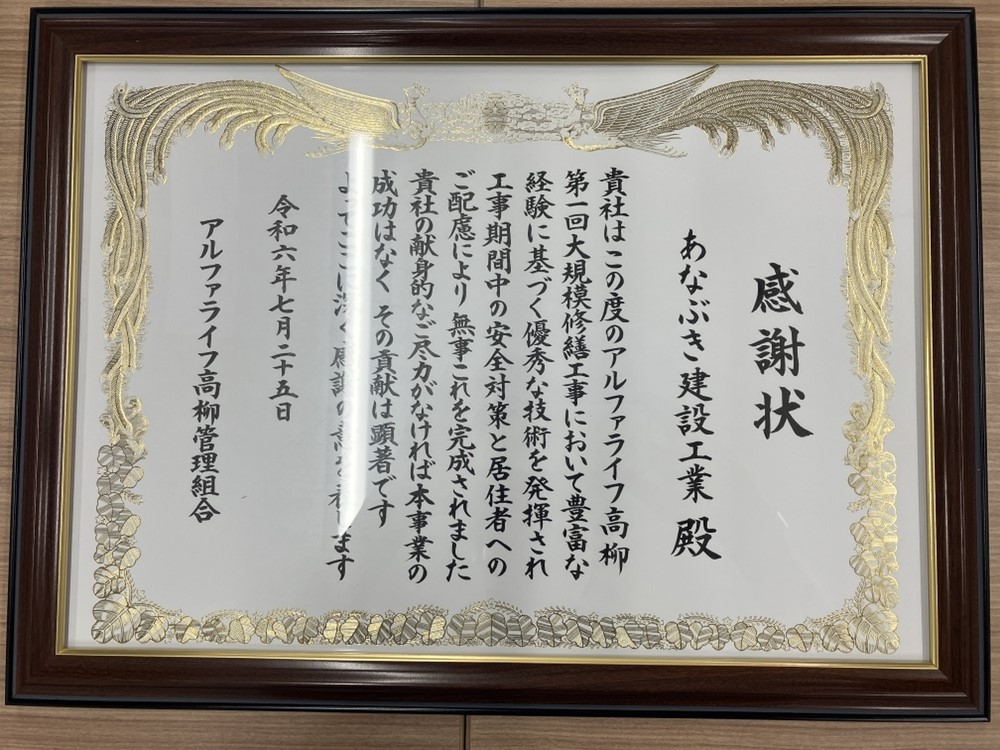 感謝状
あなぶき建設工業 殿
貴社はこの度のアルファライフ高柳
第一回大規模修繕工事において豊富な
経験に基づく優秀な技術を発揮され
工事期間中の安全対策と居住者への
ご配慮により 無事これを完成されました
貴社の献身的なご尽力がなければ本事業の
成功はなく その貢献は顕著です
よってここに深く感謝の意を表します
令和六年七月二十五日
アルファライフ高柳管理組合